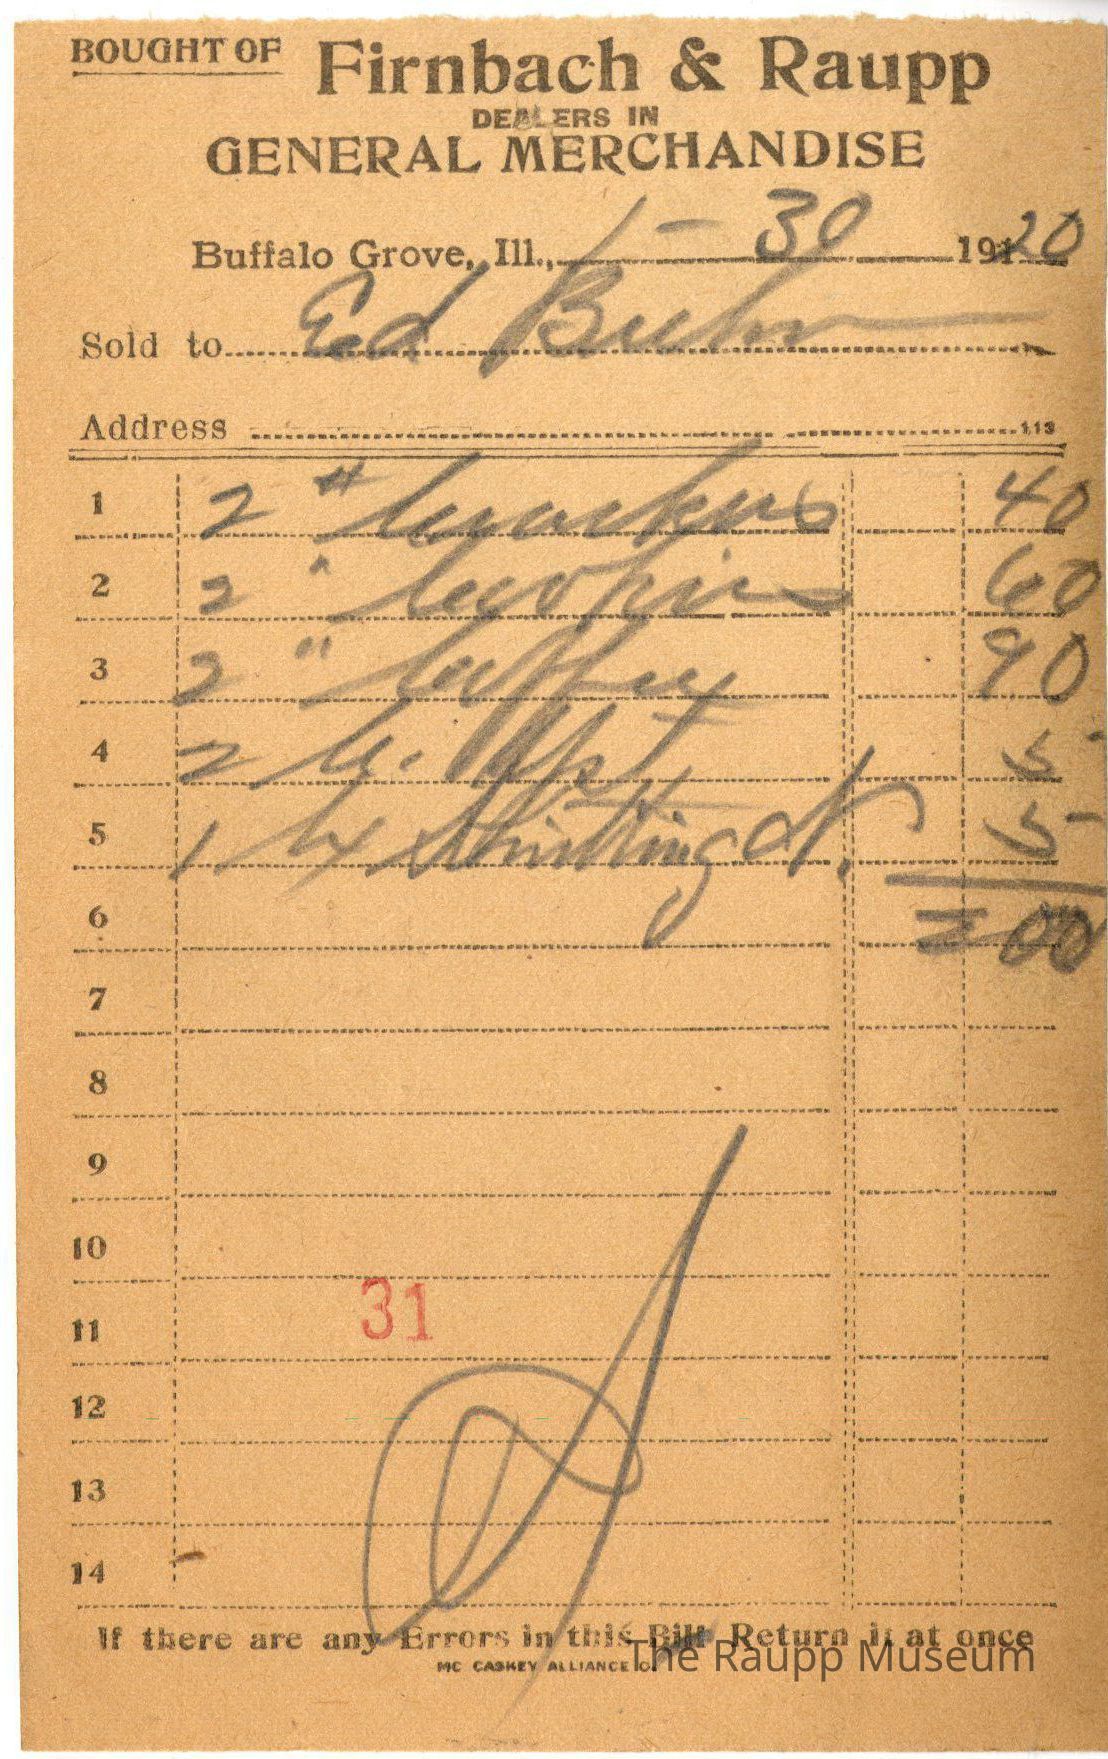 BOUGHT OF Firnbach & Raupp
DEALERS IN
GENERAL MERCHANDISE
Buffalo Grove, Ill., 1-30 1920
Sold to Ed Buhr
Address
113
1 2 # Crackers 40
2 2 " Cookies 60
3 2 " Coffee 90
4 2 5
5 1 5
6 200
7
8
9
10
31
11
12
13
14
If there are any Errors in this Bill Return it at once
MC CASKEY ALLIANCE O.
The Raupp Museum